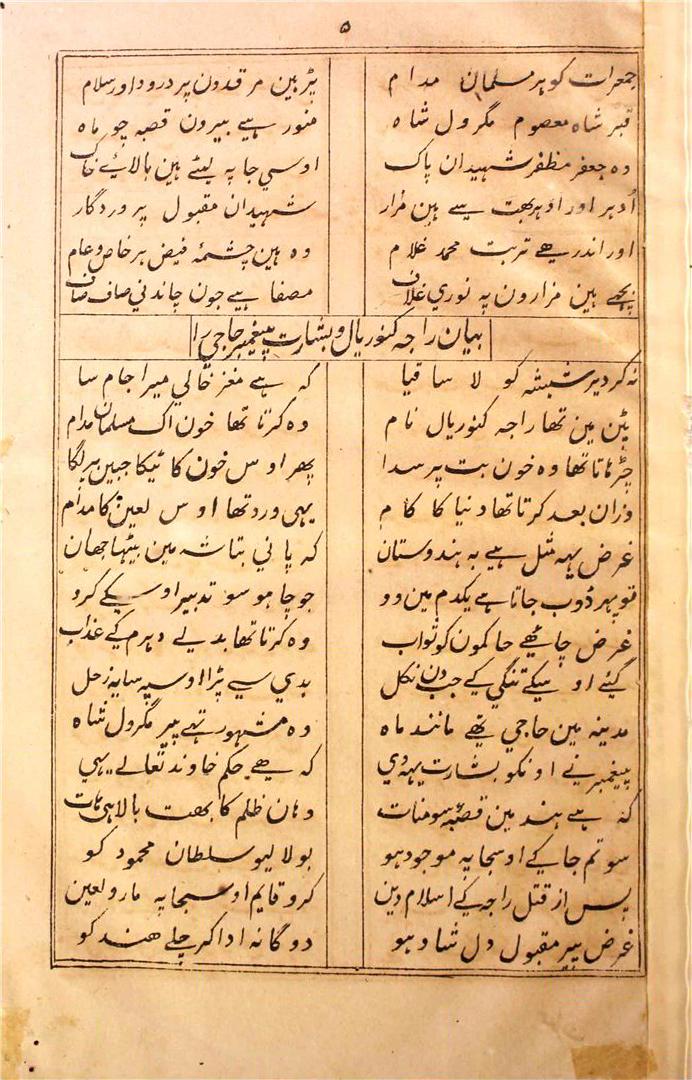 ۵
جمعرات کو ہر مسلمان مدام پڑہین مرقدون پر درود اور سلام
قبر شاہ معصوم مگرول شاہ منور ہیے بیرون قصبہ چو ماہ
وہ جعفر مظفر شہیدان پاک اوسی جا پہ لیٹے ہین بالائے خاک
اُدہر اور اودہر بہت سے ہین مزار شہیدان مقبول پروردگار
اور اندر ھے تربت محمد غلام وہ ہین چشمۂ فیض ہر خاص و عام
بچھے ہین مزارون پہ نوری غلاف مصفا ہیے جون چاندنی صاف صاف
بیان راجہ کنورپال و بشارت پیغمبر حاجی را
نہ کر دیر شیشہ کو لا ساقیا کہ ہے مغز خالی میرا جام سا
پٹن مین تھا راجہ کنورپال نام وہ کرتا تھا خون اک مسلمان مدام
چڑہاتا تھا وہ خون بت پر سدا پھر اوس خون کا ٹیکا جبین پر لگا
وزان بعد کرتا تھا دنیا کا کام یہی ورد تھا اوس لعین کا مدام
غرض یہہ مثل ہیے بہ ہندوستان کہ پانی بتاشہ مین بیٹھا جھان
تو پہر ڈوب جاتا ہے یکدم مین وو جو چاہو سو تدبیر اوسکے کرو
غرض چاہیے حاکمون کو ثواب وہ کرتا تھا بدلے دہرم کے عذاب
گئے اوسکے تنگی کے جب دن نکل بدی سے پڑا اوسپہ سایہ زحل
مدینہ مین حاجی تھے مانند ماہ وہ مشہور تھے پیر مگرول شاہ
پیغمبر نے اونکو بشارت یہہ دی کہ ھے حکم خاوند تعالے یہی
کہ ہے ہند مین قصبۂ سومنات وہان ظلم کا بھت بالا ہی ہات
سو تم جا کے اوسجا پہ موجود ہو بولا لیو سلطان محمود کو
پس از قتل راجہ کے اسلام دین کرو قایم اوسجا پہ مارو لعین
غرض پیر مقبول دل شاد ہو دوگانہ ادا کر چلے ھند کو